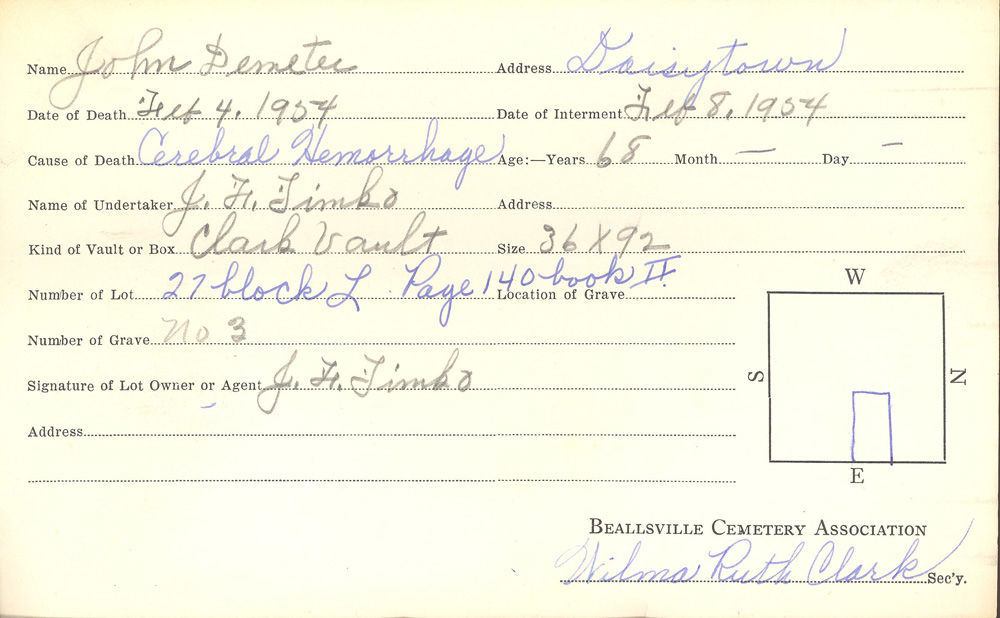 Name John Demeter Address Daisytown
Date of Death Feb 4, 1954 Date of Interment Feb 8, 1954
Cause of Death Cerebral Hemorrhage Age:—Years 68 Month — Day —
Name of Undertaker J. F. Timko Address
Kind of Vault or Box Clark Vault Size 36 X 92
Number of Lot 27 block L Page 140 book II. Location of Grave
W
Number of Grave No 3
S N
Signature of Lot Owner or Agent J. F. Timko
Address
E
BEALLSVILLE CEMETERY ASSOCIATION
Wilma Ruth Clark Sec'y.